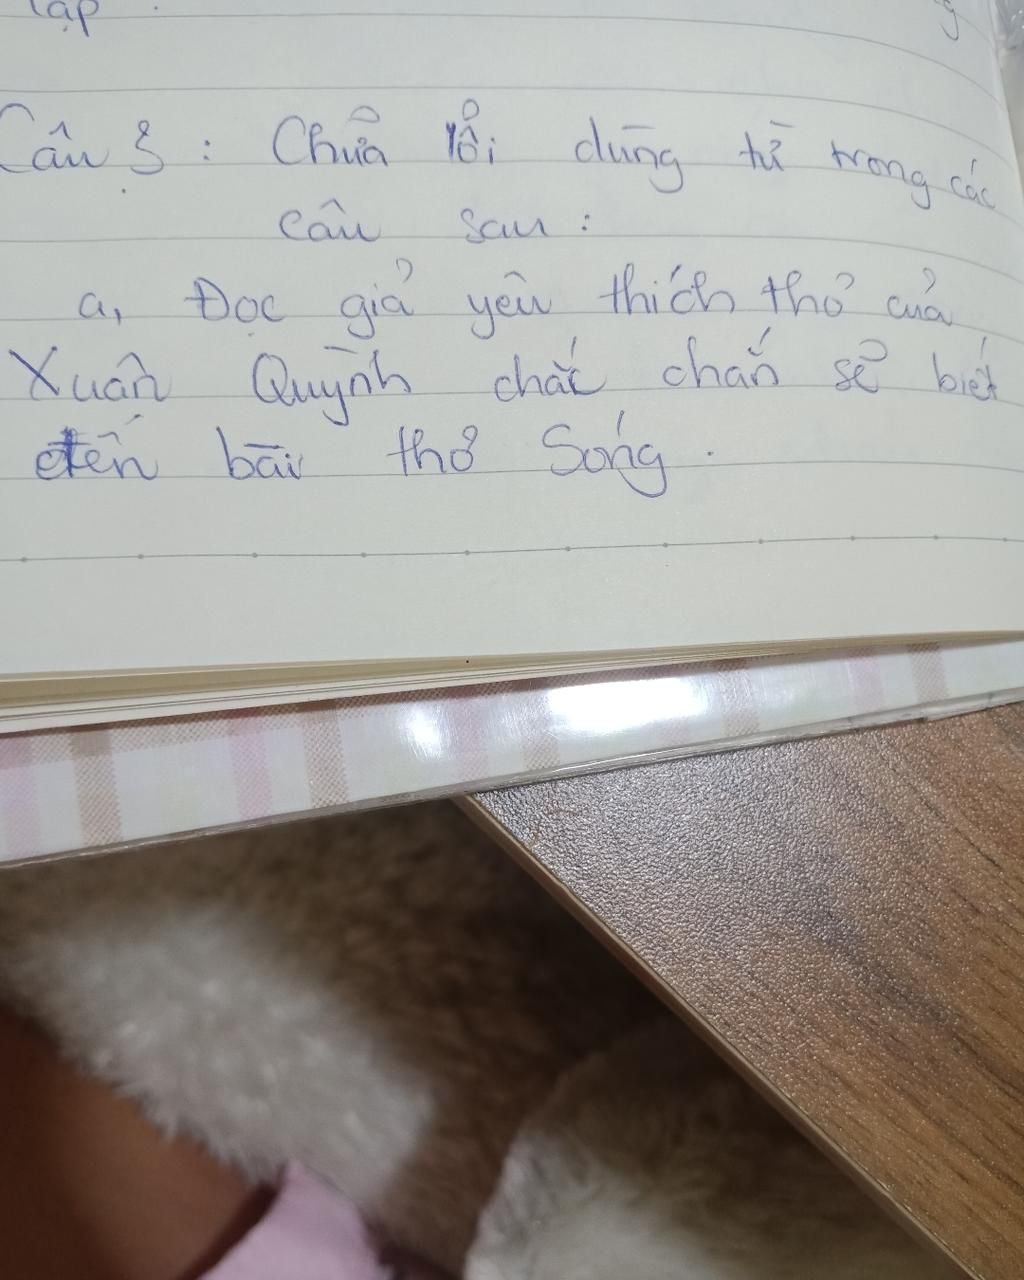 lạp.
Câu 3: Chữa lỗi dùng từ trong các
câu sau:
a, Đọc giả yêu thích thơ của
Xuân Quỳnh chắc chắn sẽ biết
đến bài thơ Sóng.